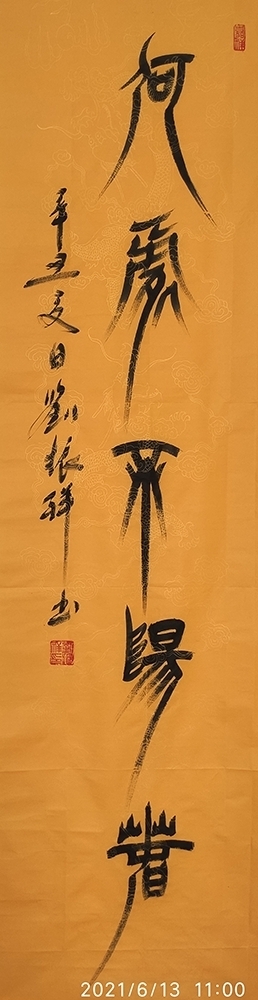 何處不陽春
辛丑夏日劉振祥书
2021/6/13 11:00